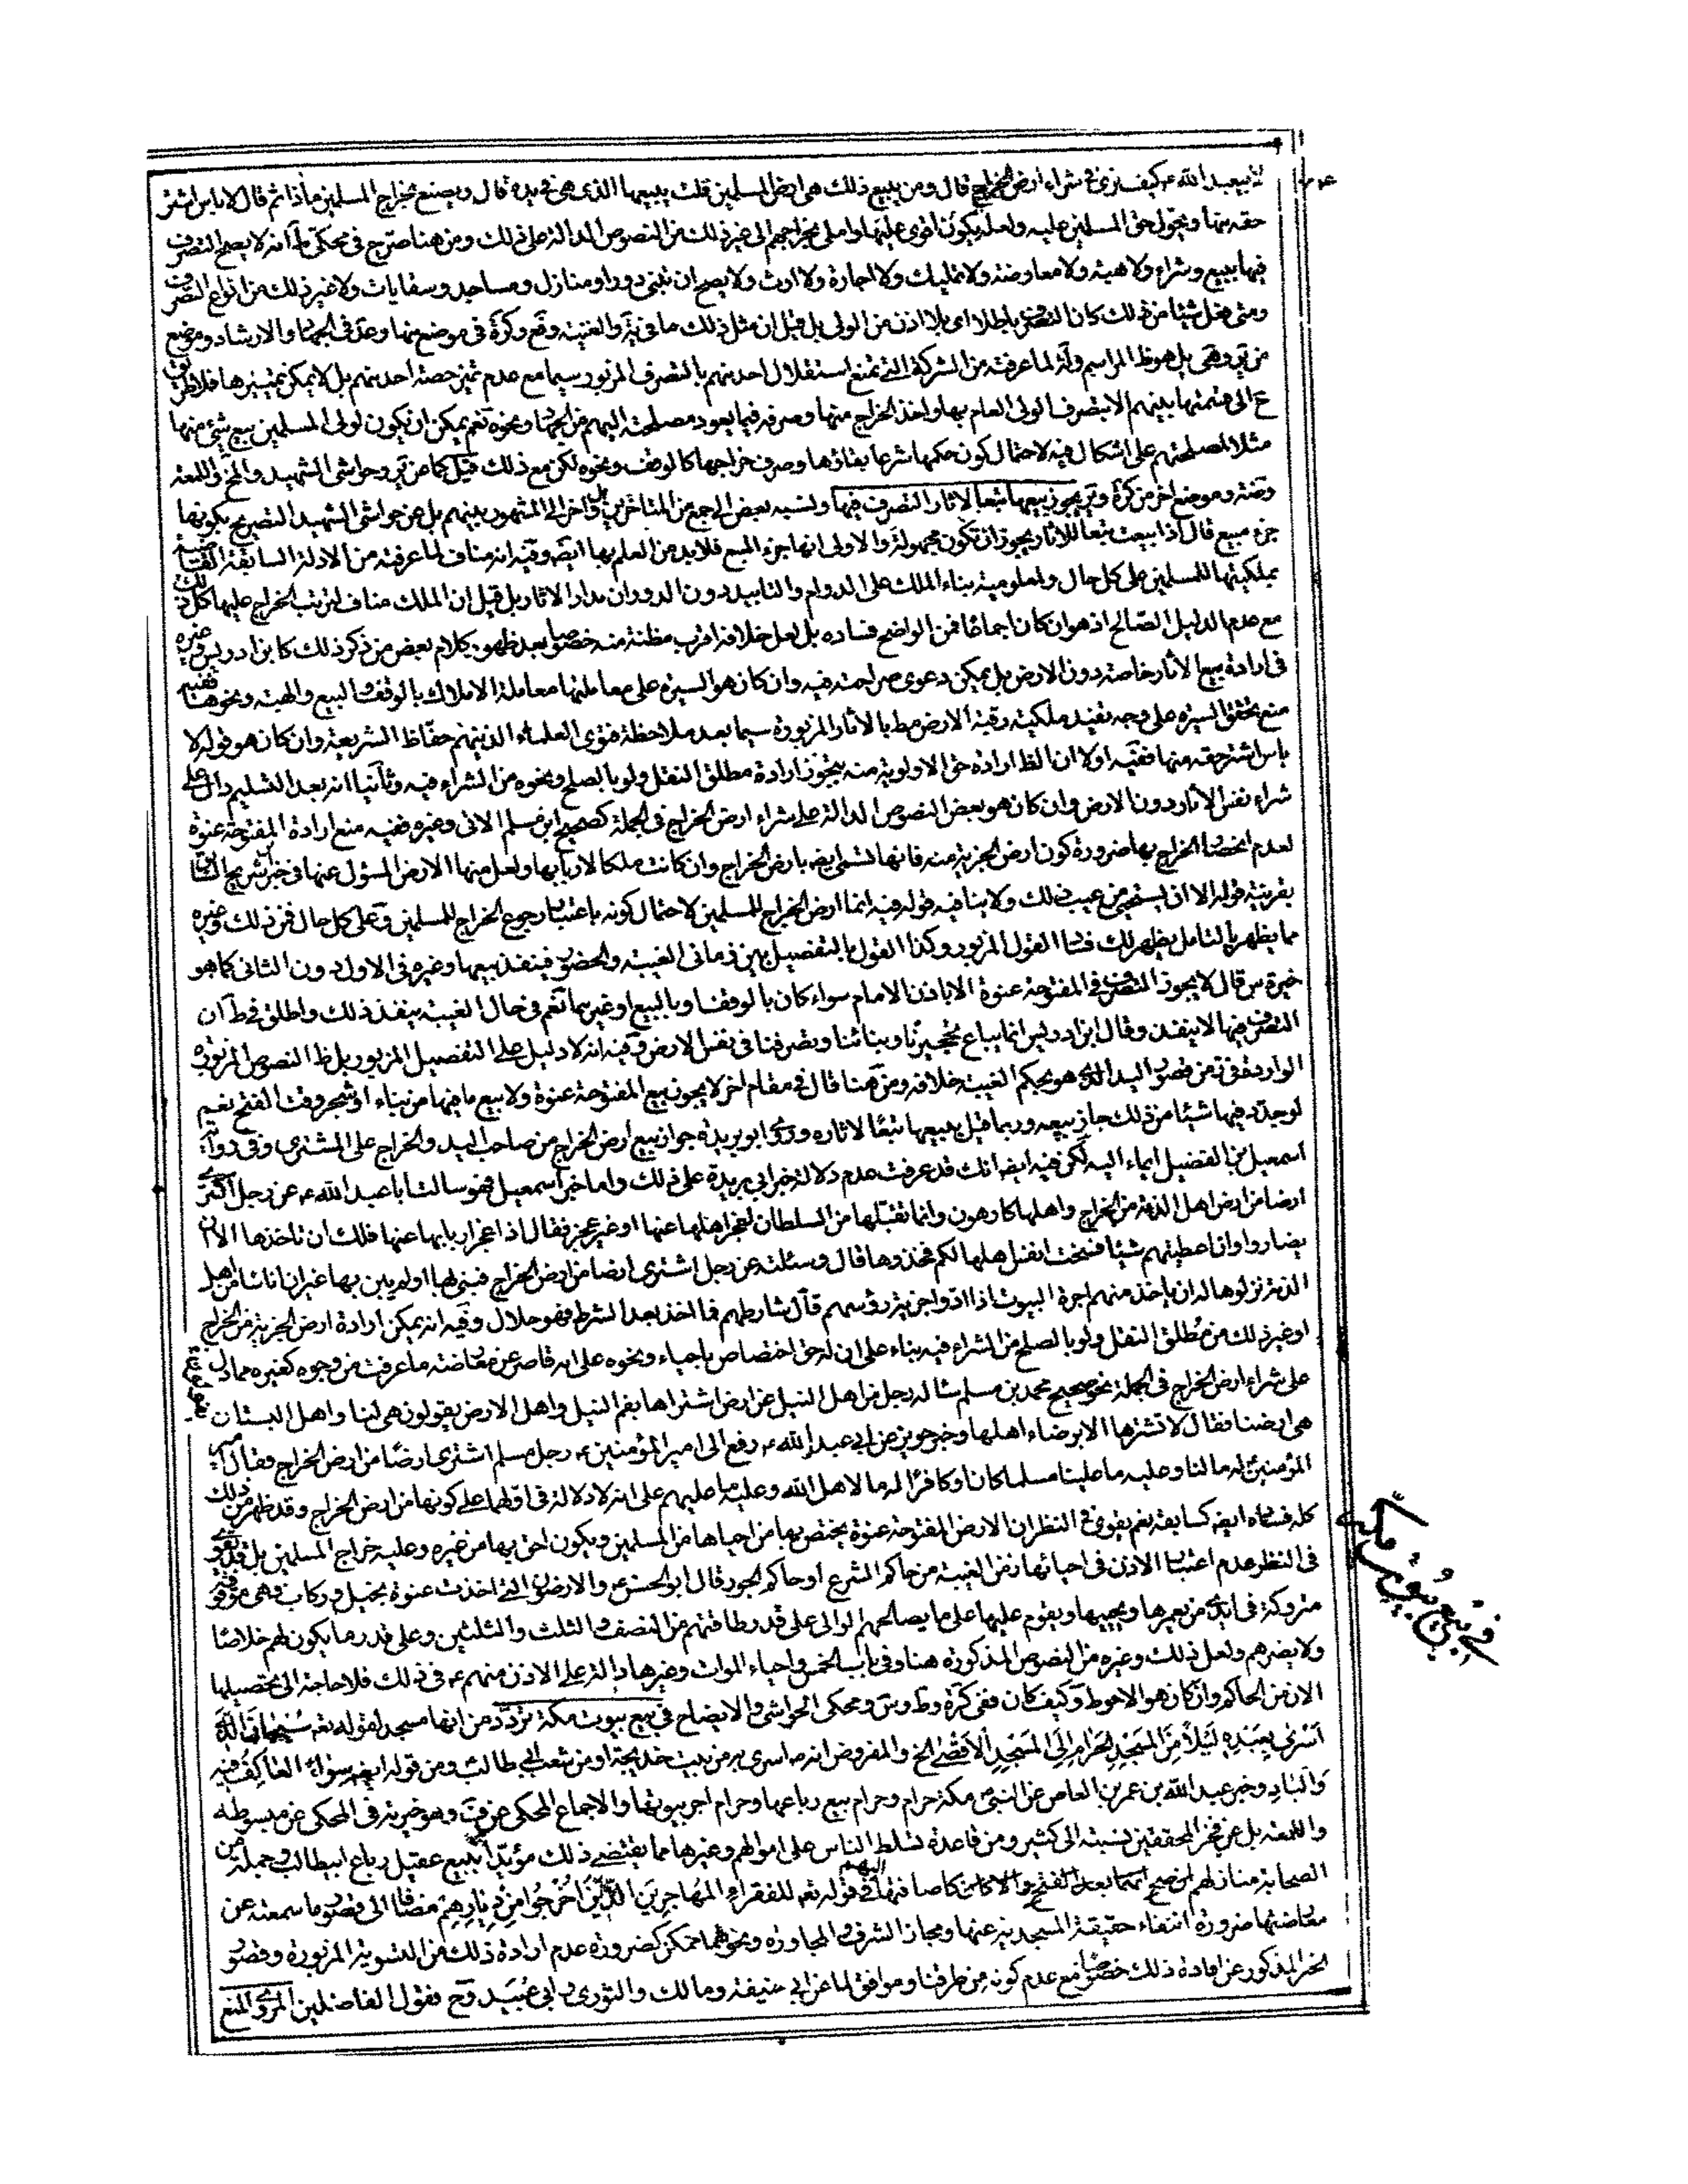 لابيعبد الله ع كيف ترى فى شراء ارض الخراج قال ومن يبيع ذلك هى ارض المسلمين قلت يبيعها الذى هى فى يده قال ويصنع بخراج المسلمين ماذا ثم قال لا باس اشتر
حقه منها ويحول حق المسلمين عليه ولعله يكون اقوى عليها واملى بخراجهم الى غير ذلك من النصوص الدالة على ذلك ومن هنا صرح فى محكى ط انه لا يصح التصرف
فيها ببيع وشراء ولا هبة ولا معاوضة ولا تمليك ولا اجارة ولا ارث ولا يصح ان تبنى دورا ومنازل ومساجد وسقايات ولا غير ذلك من انواع التصرف
ومتى فعل شيئا من ذلك كان التصرف باطلا اى بلا اذن من الولى بل قيل ان مثل ذلك ما فى ية والغنية وقع وكرة فى موضع منها وعد فى الجهاد والارشاد وموضع
من ير وهى بل هو ظ المراسم ولما عرفته من الشركة التى تمنع استقلال احد منهم بالتصرف المزبور سيما مع عدم تميز حصة احد منهم بل لا يمكن تمييزها فلا طريق
ح الى قسمتها بينهم الا بتصرف الولى العام بها واخذ الخراج منها وصرفه فيما يعود مصلحته اليهم من الجهاد ونحوه نعم يمكن ان يكون لولى المسلمين بيع شئ منها
مثلا لمصلحتهم على اشكال فيه لاحتمال كون حكمها شرعا بقاؤها وصرف خراجها كالوقف ونحوه لكن مع ذلك قيل كما عن ير وحواشى الشهيد واللمعة
وضة وموضع اخر من كرة وير يجوز بيعها تبعا لاثار التصرف فيها ونسبه بعض الى جمع من المتاخرين بل واخر الى المشهور بينهم بل عن حواشى الشهيد التصريح بكونها
جزء مبيع قال اذا بيعت تبعا للاثار ويجوز ان تكون مجهولة والاولى انها جزء المبيع فلا بد من العلم بها ايضا وفيه انه مناف لما عرفته من الادلة السابقة
بملكيتها للمسلمين على كل حال ولمعلومية بناء الملك على الدوام والتابيد دون الدوران مدار الاثار بل قيل ان الملك مناف لترتب الخراج عليها كل ذلك
مع عدم الدليل الصالح اذ هو ان كان اجماعا فمن الواضح فساده بل لعل خلافه اقرب مظنة منه خصوصا بعد ظهور كلام بعض من ذكر ذلك كابن ادريس وغيره
فى ارادة بيع الاثار خاصة دون الارض بل يمكن دعوى صراحته فيه وان كان هو السيرة على معاملتها معاملة الاملاك بالوقف والبيع والهبة ونحوها ففيه
منع تحقق السيرة على وجه تفيد ملكية رقبة الارض مط بالاثار المزبورة سيما بعد ملاحظة فتوى العلماء الذين هم حفاظ الشريعة وان كان هو قوله لا
باس اشتر حقه منها ففيه اولا ان الظ ارادة حق الاولوية منه بتجوز ارادة مطلق النقل ولو بالصلح ونحوه من الشراء فيه وثانيا انه بعد التسليم دال على
شراء نفس الاثار دون الارض وان كان هو بعض النصوص الدالة على شراء ارض الخراج فى الجملة كصحيح ابن مسلم الاتى وغيره ففيه منع ارادة المفتوحة عنوة
لعدم انحصار الخراج بها ضرورة كون ارض الجزية منه فانها تسمى ايضا بارض الخراج وان كانت ملكا لاربابها ولعل منها الارض المسؤل عنها فى خبر شريح
بقرينة قوله الا ان يستحيى من عيب ذلك ولا ينافيه قوله فيه انما ارض الخراج للمسلمين لاحتمال كونه باعتبار رجوع الخراج للمسلمين وعلى كل حال فمن ذلك وغيره
مما يظهر بالتامل يظهر لك فساد القول المزبور وكذا القول بالتفصيل بين زمانى الغيبة والحضور فينفذ بيعها وغيره فى الاول دون الثانى كما هو
خيرة س قال لا يجوز التصرف فى المفتوحة عنوة الا باذن الامام سواء كان بالوقف او بالبيع او غيرهما نعم فى حال الغيبة ينفذ ذلك واطلق فى ط ان
التصرف فيها لا ينفذ وقال ابن ادريس انما يباع تحجيرنا وبنائنا وتصرفنا فى نفس الارض وفيه انه لا دليل على التفصيل المزبور بل ظ النصوص المزبورة
الواردة فى زمن قصور اليد الذى هو بحكم الغيبة خلافه ومن هنا قال فى مقام اخر لا يجوز بيع المفتوحة عنوة ولا بيع ما فيها من بناء او شجر وقت الفتح نعم
لو جدد فيها شيئا من ذلك جاز بيعه وربما قيل ببيعها تبعا لاثاره وروى ابو بردة جواز بيع ارض الخراج من صاحب اليد والخراج على المشترى وفى رواية
اسمعيل بن الفضيل ايماء اليه لكن فيه ايضا انك قد عرفت عدم دلالة خبر ابى بردة على ذلك واما خبر اسمعيل فهو سالت ابا عبد الله ع عن رجل اكترى
ارضا من ارض اهل الذمة من الخراج واهلها كارهون وانما تقبلها من السلطان لعجز اهلها عنها او غير عجز فقال اذا عجز اربابها عنها فلك ان تاخذها الا ان
يضاروا وان اعطيتهم شيئا فسخت انفس اهلها لكم فخذوها قال وسئلته عن رجل اشترى ارضا من ارض الخراج فبنى بها او لم يبن بها غير ان اناسا من اهل
الذمة نزلوها له ان ياخذ منهم اجرة البيوت اذا ادوا جزية رؤسهم قال شارطهم فما اخذ بعد الشرط فهو حلال وفيه انه يمكن ارادة ارض الجزية من الخراج
او غير ذلك من مطلق النقل ولو بالصلح من الشراء فيه بناء على ان له حق اختصاص باحياء ونحوه على انه قاصر عن معارضة ما عرفت من وجوه كغيره مما دل
على شراء ارض الخراج فى الجملة نحو صحيح محمد بن مسلم ساله رجل من اهل النيل عن ارض اشتراها بفم النيل واهل الارض يقولون هى لنا واهل البستان
هى ارضنا فقال لا تشترها الا برضاء اهلها وخبر حريز عن ابى عبد الله ع رفع الى امير المؤمنين ع رجل مسلم اشترى ارضا من ارض الخراج فقال امير
المؤمنين له ما لنا وعليه ما علينا مسلما كان او كافرا له ما لاهل الله وعليه ما عليهم على انه لا دلالة فى اولهما على كونها من ارض الخراج وقد ظهر من ذلك
كله فساده ايضا كسابقه نعم يقوى فى النظر ان الارض المفتوحة عنوة يختص بها من احياها من المسلمين ويكون احق بها من غيره وعليه خراج المسلمين بل قد يقوى
فى النظر عدم اعتبار الاذن فى احيائها زمن الغيبة من حاكم الشرع او حاكم الجور قال ابو الحسن ع والارضون التى اخذت عنوة بخيل وركاب فهى موقوفة
متروكة فى ايدى من يعمرها ويحييها ويقوم عليها على ما يصالحهم الوالى على قدر طاقتهم من النصف والثلث والثلثين وعلى قدر ما يكون لهم خلاصا
ولا يضرهم ولعل ذلك وغيره من النصوص المذكورة هنا وفى باب الخمس واحياء الموات وغيرها دالة على الاذن منهم ع فى ذلك فلا حاجة الى تحصيلها
الان من الحاكم وان كان هو الاحوط وكيف كان ففى كرة وط وس ومحكى الحواشى والايضاح فى بيع بيوت مكة تردد من انها مسجد لقوله تعه سبحان الذى
اسرى بعبده ليلا من المسجد الحرام الى المسجد الاقصى الخ والمفروض انه ص اسرى به من بيت خديجة او من شعب ابى طالب ومن قوله ايضا سواء العاكف فيه
والباد وخبر عبد الله بن عمر بن العاص عن النبى ص مكة حرام وحرام بيع رباعها وحرام اجر بيوتها والاجماع المحكى عن ف وهو خيرته فى المحكى عن مبسوطه
واللمعة بل عن فخر المحققين نسبته الى كثير ومن قاعدة تسلط الناس على اموالهم وغيرها مما يقتضى ذلك مؤيدا ببيع عقيل رباع ابيطالب وجملة من
الصحابة منازلهم بعد الفتح كاضافتها اليهم فى قوله تعه للفقراء المهاجرين الذين اخرجوا من ديارهم مضافا الى قصور ما سمعته عن
معارضتها ضرورة انتفاء حقيقة المسجدية عنها ومجاز الشرف والمجاورة ونحوهما ممكن كضرورة عدم ارادة ذلك من التسوية المزبورة وقصور
الخبر المذكور عن افادة ذلك خصوصا مع عدم كونه من طرقنا وموافق لما عن ابى حنيفة ومالك والثورى وابى عبيد وح فقول الفاضلين المروى المنع
فى بيع بيوت مكة